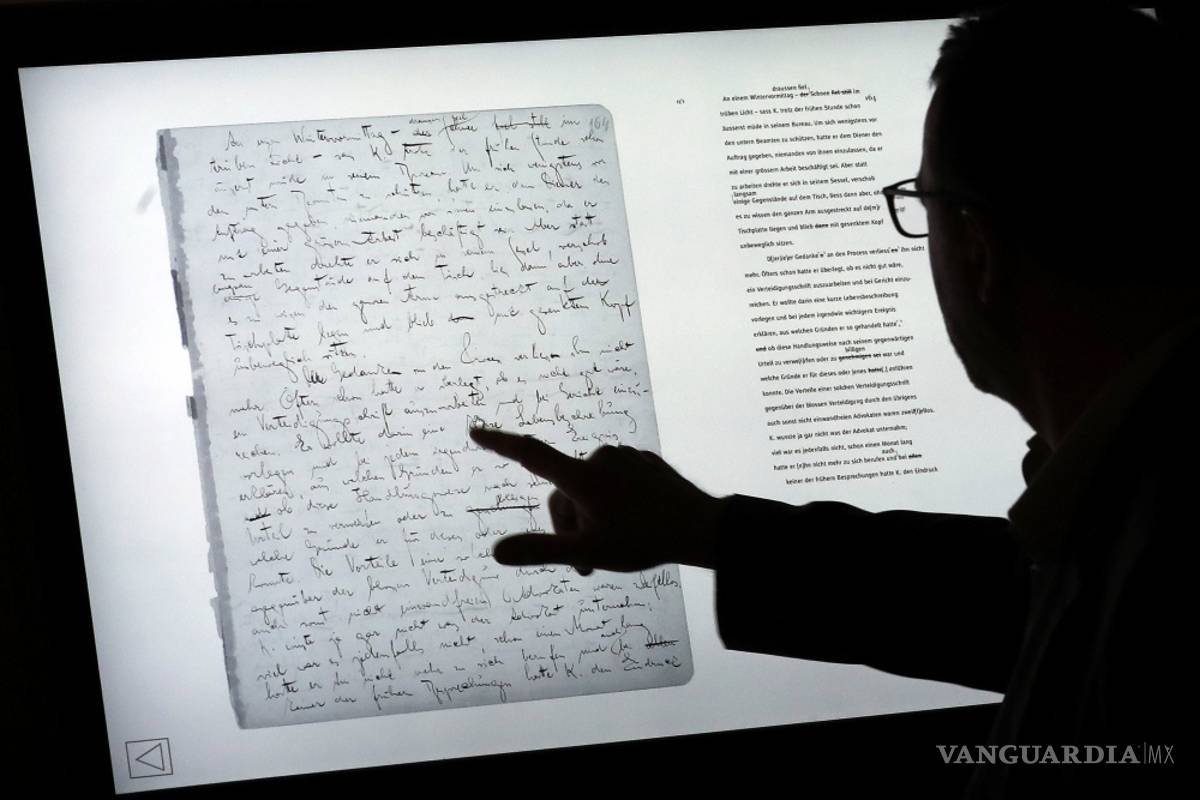 draussen fiel
An einem Wintervormittag – der Schnee fiel still im
164
trüben Licht – sass K. trotz der frühen Stunde schon
äusserst müde in seinem Bureau. Um sich wenigstens vor
den untern Beamten zu schützen, hatte er dem Diener den
Auftrag gegeben niemanden von ihnen einzulassen, da er
mit einer grössern Arbeit beschäftigt sei. Aber statt
zu arbeiten drehte er sich in seinem Sessel, verschob
langsam
einige Gegenstände auf dem Tisch, liess dann aber ohne
es zu wissen den ganzen Arm ausgestreckt auf der
Tischplatte liegen und blieb dann mit gesenktem Kopf
unbeweglich sitzen.
Der Gedanke an den Process verliess ihn nicht
mehr. Öfters schon hatte er überlegt, ob es nicht gut wäre,
ein Verteidigungsschrift auszuarbeiten und bei Gericht einzu-
reichen. Er wollte darin eine kurze Lebensbeschreibung
vorlegen und bei jedem irgendwie Ereignis
erklären, aus welchen Gründen er so
und ob diese Handlungsweise nach
Urteil zu verwerfen oder zu genehmigen billigen
welche Gründe er für dieses oder
konnte. Die Vorteile einer solchen
gegenüber der blossen Verteidigung durch
auch sonst nicht einwandfreien Advokaten waren zweifellos.
K. wusste ja gar nicht was der Advokat unternahm;
viel war es jedenfalls nicht, schon einen Monat lang
hatte er ihn nicht mehr zu sich berufen und auch bei allen
keiner der frühern Besprechungen hatte K. den Eindruck
draussen fiel,
An einem Wintervormittag – der Schnee fiel still im
164
trüben Licht – sass K. trotz der frühen Stunde schon
äusserst müde in seinem Bureau. Um sich wenigstens vor
den untern Beamten zu schützen, hatte er dem Diener den
Auftrag gegeben, niemanden von ihnen einzulassen, da er
mit einer grössern Arbeit beschäftigt sei. Aber statt
zu arbeiten drehte er sich in seinem Sessel, verschob
langsam
einige Gegenstände auf dem Tisch, liess dann aber, ohne
es zu wissen den ganzen Arm ausgestreckt auf de[m]r
Tischplatte liegen und blieb dann mit gesenktem Kopf
unbeweglich sitzen.
D[er]ie]er Gedanke an den Process verliess en ihn nicht
mehr. Öfters schon hatte er überlegt, ob es nicht gut wäre,
ein Verteidigungsschrift auszuarbeiten und bei Gericht einzu-
reichen. Er wollte darin eine kurze Lebensbeschreibung
vorlegen und bei jedem irgendwie wichtigern Ereignis
erklären, aus welchen Gründen er so gehandelt hatte,
und ob diese Handlungsweise nach seinem gegenwärtigen
billigen
Urteil zu verwe[i]fen oder zu genehmigen sei war und
welche Gründe er für dieses oder jenes hatte[,] anführen
konnte. Die Vorteile einer solchen Verteidigungsschrift
gegenüber der blossen Verteidigung durch den übrigens
auch sonst nicht einwandfreien Advokaten waren zweif[f]ellos.
K. wusste ja gar nicht was der Advokat unternahm;
viel war es jedenfalls nicht, schon einen Monat lang
auch
hatte er [n]hn nicht mehr zu sich berufen und bei allen
keiner der frühern Besprechungen hatte K. den Eindruck
VANGUARDIA|MX